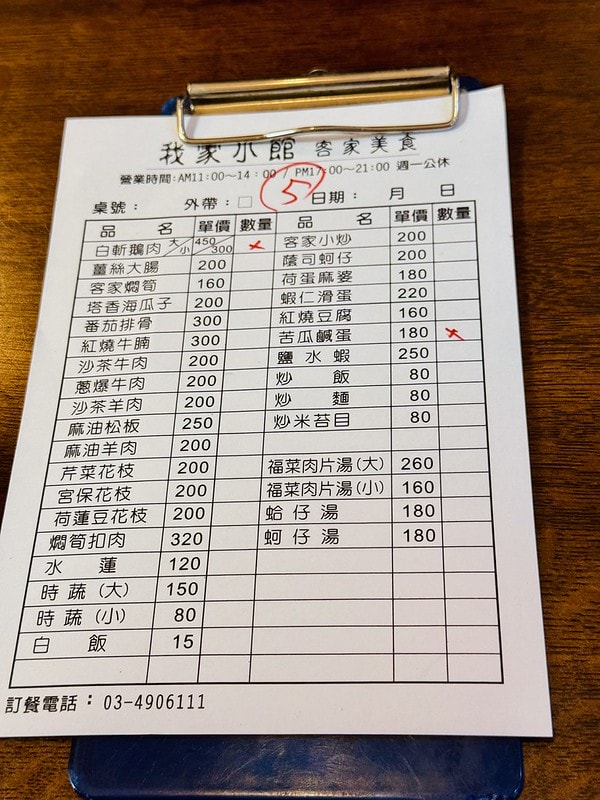 我家小館 客家美食
營業時間:AM11:00～14:00 / PM17:00～21:00 週一公休
桌號： 外帶：□ 5 日期： 月 日
品 名 單價 數量 品 名 單價 數量
白斬鵝肉 大/小 450/300 x 客家小炒 200
薑絲大腸 200 蔭司蚵仔 200
客家燜筍 160 荷蛋麻婆 180
塔香海瓜子 200 蝦仁滑蛋 220
番茄排骨 300 紅燒豆腐 160
紅燒牛腩 300 苦瓜鹹蛋 180 x
沙茶牛肉 200 鹽水蝦 250
蔥爆牛肉 200 炒飯 80
沙茶羊肉 200 炒麵 80
麻油松板 250 炒米苔目 80
麻油羊肉 200
芹菜花枝 200 福菜肉片湯(大) 260
宮保花枝 200 福菜肉片湯(小) 160
荷蓮豆花枝 200 蛤仔湯 180
燜筍扣肉 320 蚵仔湯 180
水蓮 120
時蔬(大) 150
時蔬(小) 80
白飯 15
訂餐電話：03-4906111